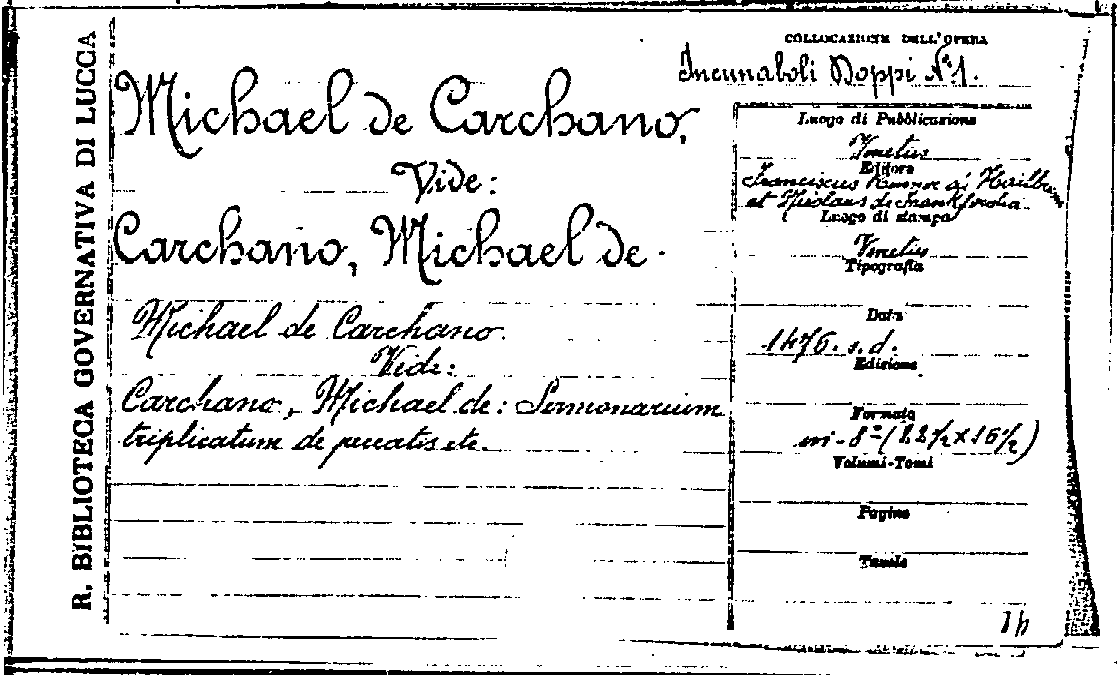 R. BIBLIOTECA GOVERNATIVA DI LUCCA
COLLOCAZIONE DELL'OPERA
Incunaboli Doppi N° 1.
Michael de Carchano,
Vide:
Carchano, Michael de.
Michael de Carchano.
Vide:
Carchano, Michael de: Sermonarium
triplicatum de peccatis etc.
Luogo di Pubblicazione
Venetiis
Editore
Franciscus Renner de Hailbrun
et Nicolaus de Frankfordia.
Luogo di stampa
Venetiis
Tipografia
Data
1476. s. d.
Edizione
Formato
in-8° (22½ x 16½)
Volumi-Tomi
Pagine
Tavole